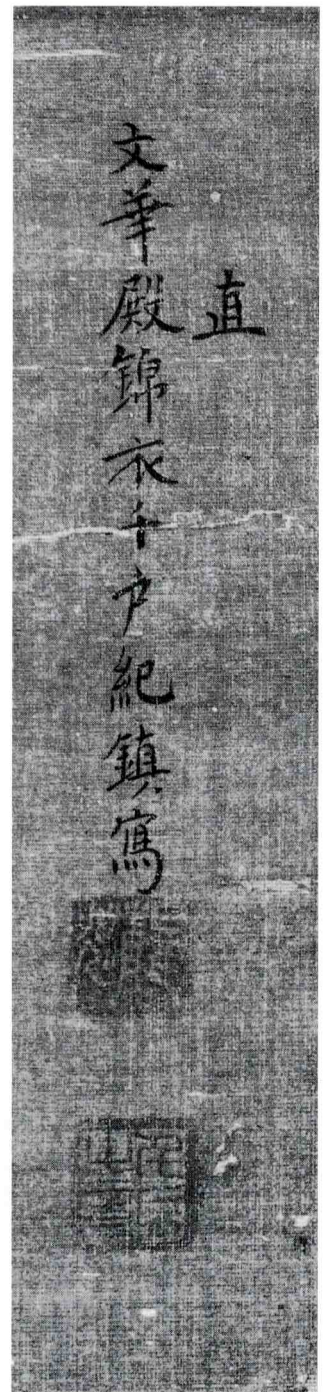 直
文華殿錦衣千户紀鎮寫